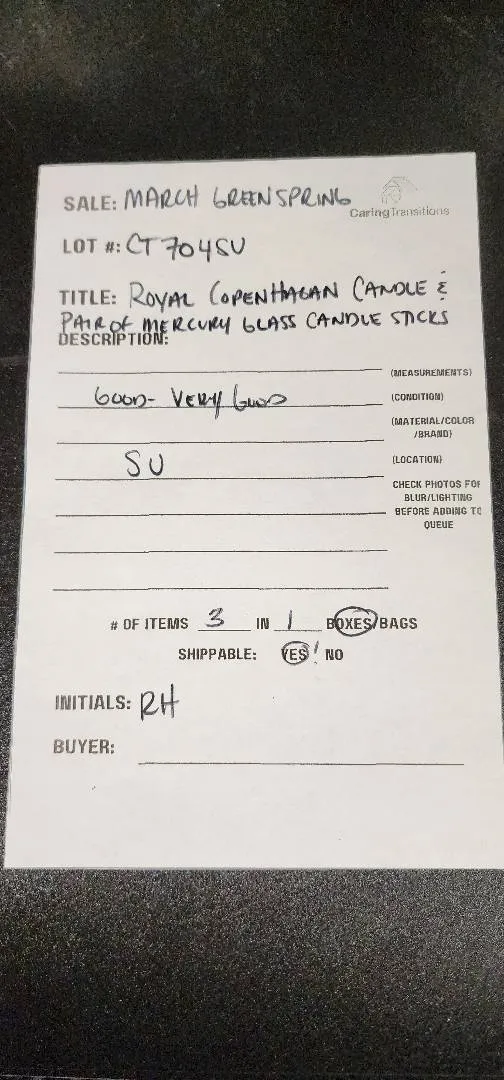 SALE: MARCH GREENSPRING
CaringTransitions
LOT #: CT704SU
TITLE: ROYAL COPENHAGAN CANDLE &
PAIR OF MERCURY GLASS CANDLE STICKS
DESCRIPTION:
(MEASUREMENTS)
GOOD- VERY GOOD (CONDITION)
(MATERIAL/COLOR
/BRAND)
SU (LOCATION)
CHECK PHOTOS FOR
BLUR/LIGHTING
BEFORE ADDING TO
QUEUE
# OF ITEMS 3 IN 1 BOXES/BAGS
SHIPPABLE: YES / NO
INITIALS: RH
BUYER: